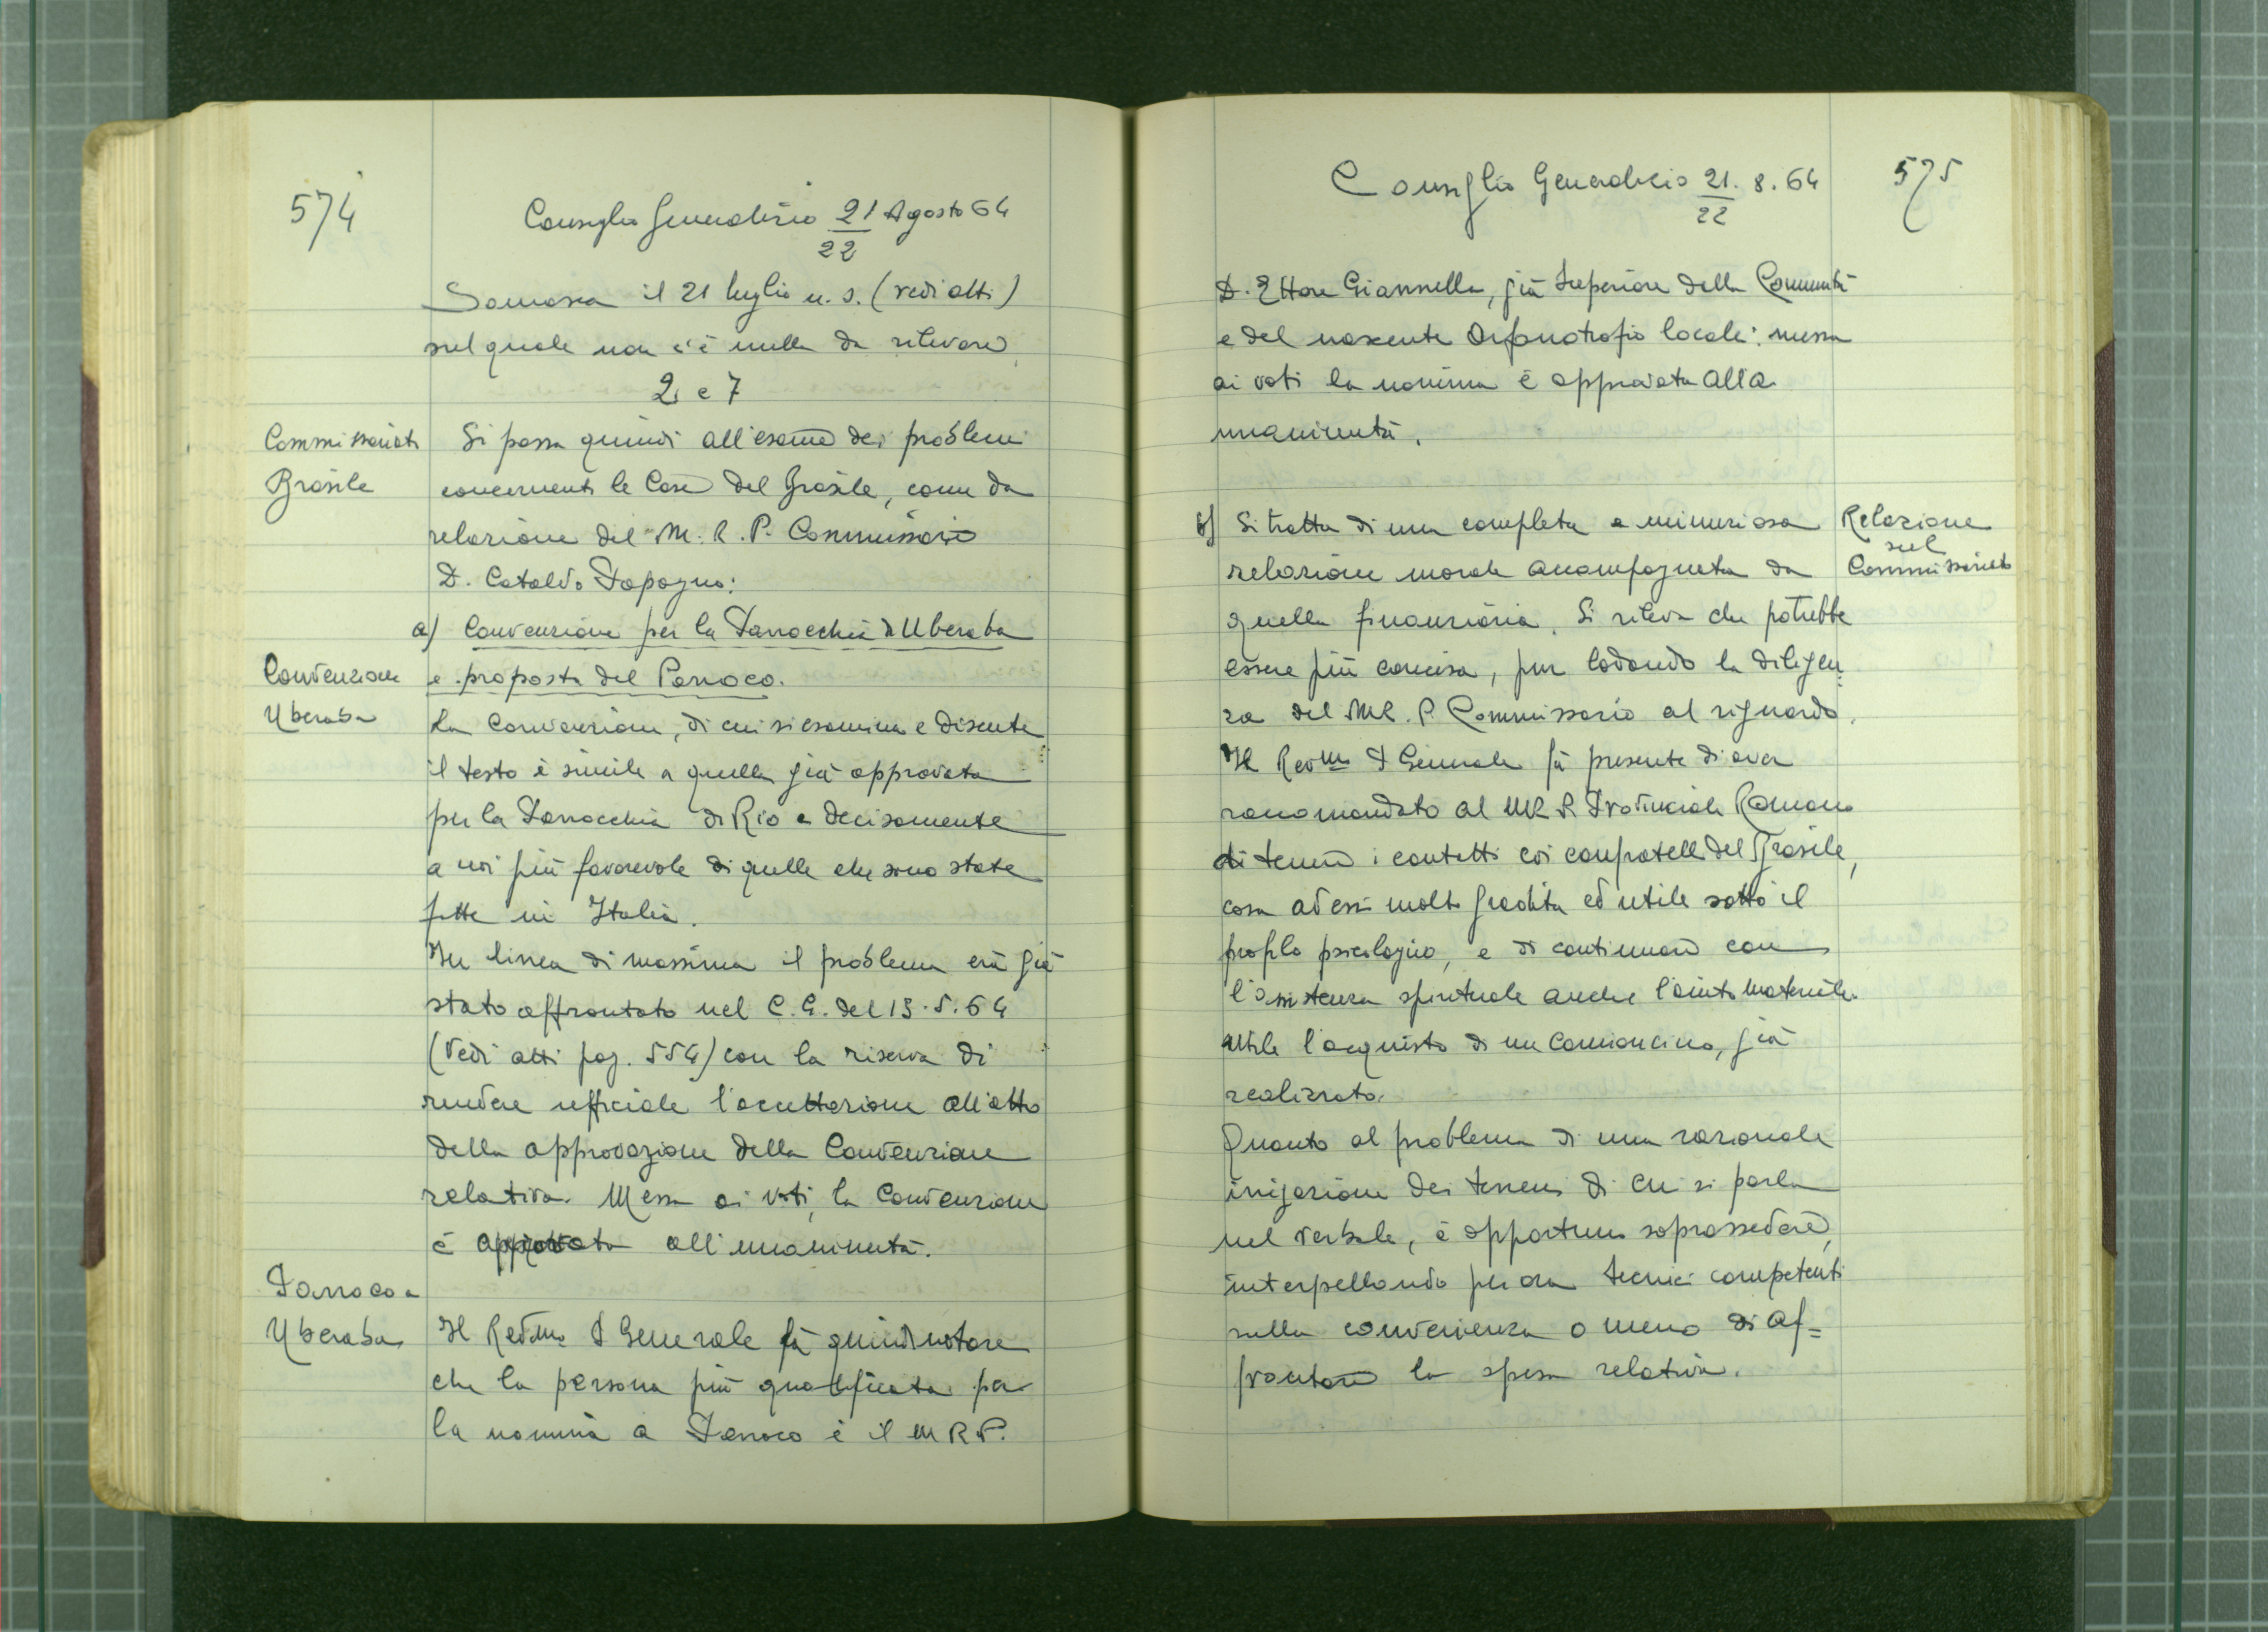 574
Consiglio Generalizio 21 Agosto 64
22
Somasca il 21 luglio u. s. (vedi atti)
sul quale non c'è nulla da rilevare
2 e 7
Commissariato
Brasile
Si passa quindi all'esame dei problemi
concernenti le Case del Brasile, come da
relazione del M. R. P. Commissario
D. Cataldo Papagno:
a) Convenzione per la Parrocchia di Uberaba
e proposta del Parroco.
Convenzione
Uberaba
La Convenzione, di cui si esamina e discute
il testo è simile a quella già approvata
per la Parrocchia di Rio e decisamente
a noi più favorevole di quelle che sono state
fatte in Italia.
In linea di massima il problema era già
stato affrontato nel C. G. del 13.5.64
(vedi atti pag. 554) con la riserva di
rendere ufficiale l'accettazione all'atto
della approvazione della Convenzione
relativa. Messa ai voti, la Convenzione
è approvata all'unanimità.
Parroco a
Uberaba
Il Rev.mo P Generale fà quindi notare
che la persona più qualificata per
la nomina a Parroco è il M R P.
575
Consiglio Generalizio 21. 8. 64
22
D. Ettore Giannella, già Superiore della Comunità
e del nascente Orfanotrofio locale: messa
ai voti la nomina è approvata alla
unanimità.
b) Si tratta di una completa e minuziosa
relazione morale accompagnata da
quella finanziaria. Si rileva che potrebbe
essere più concisa, pur lodando la diligen=
za del MR. P Commissario al riguardo.
Relazione
sul
Commissariato
Il Rev.mo P Generale fà presente di aver
raccomandato al MR P. Provinciale Romano
di tenere i contatti coi confratelli del Brasile,
cosa ad essi molto gradita ed utile sotto il
profilo psicologico, e di continuare con
l'assistenza spirituale anche l'aiuto materiale.
Utile l'acquisto di un camioncino, già
realizzato.
Quanto al problema di una razionale
irrigazione dei terreni di cui si parla
nel verbale, è opportuno soprassedere,
interpellando per ora tecnici competenti
sulla convenienza o meno di af=
frontare la spesa relativa.